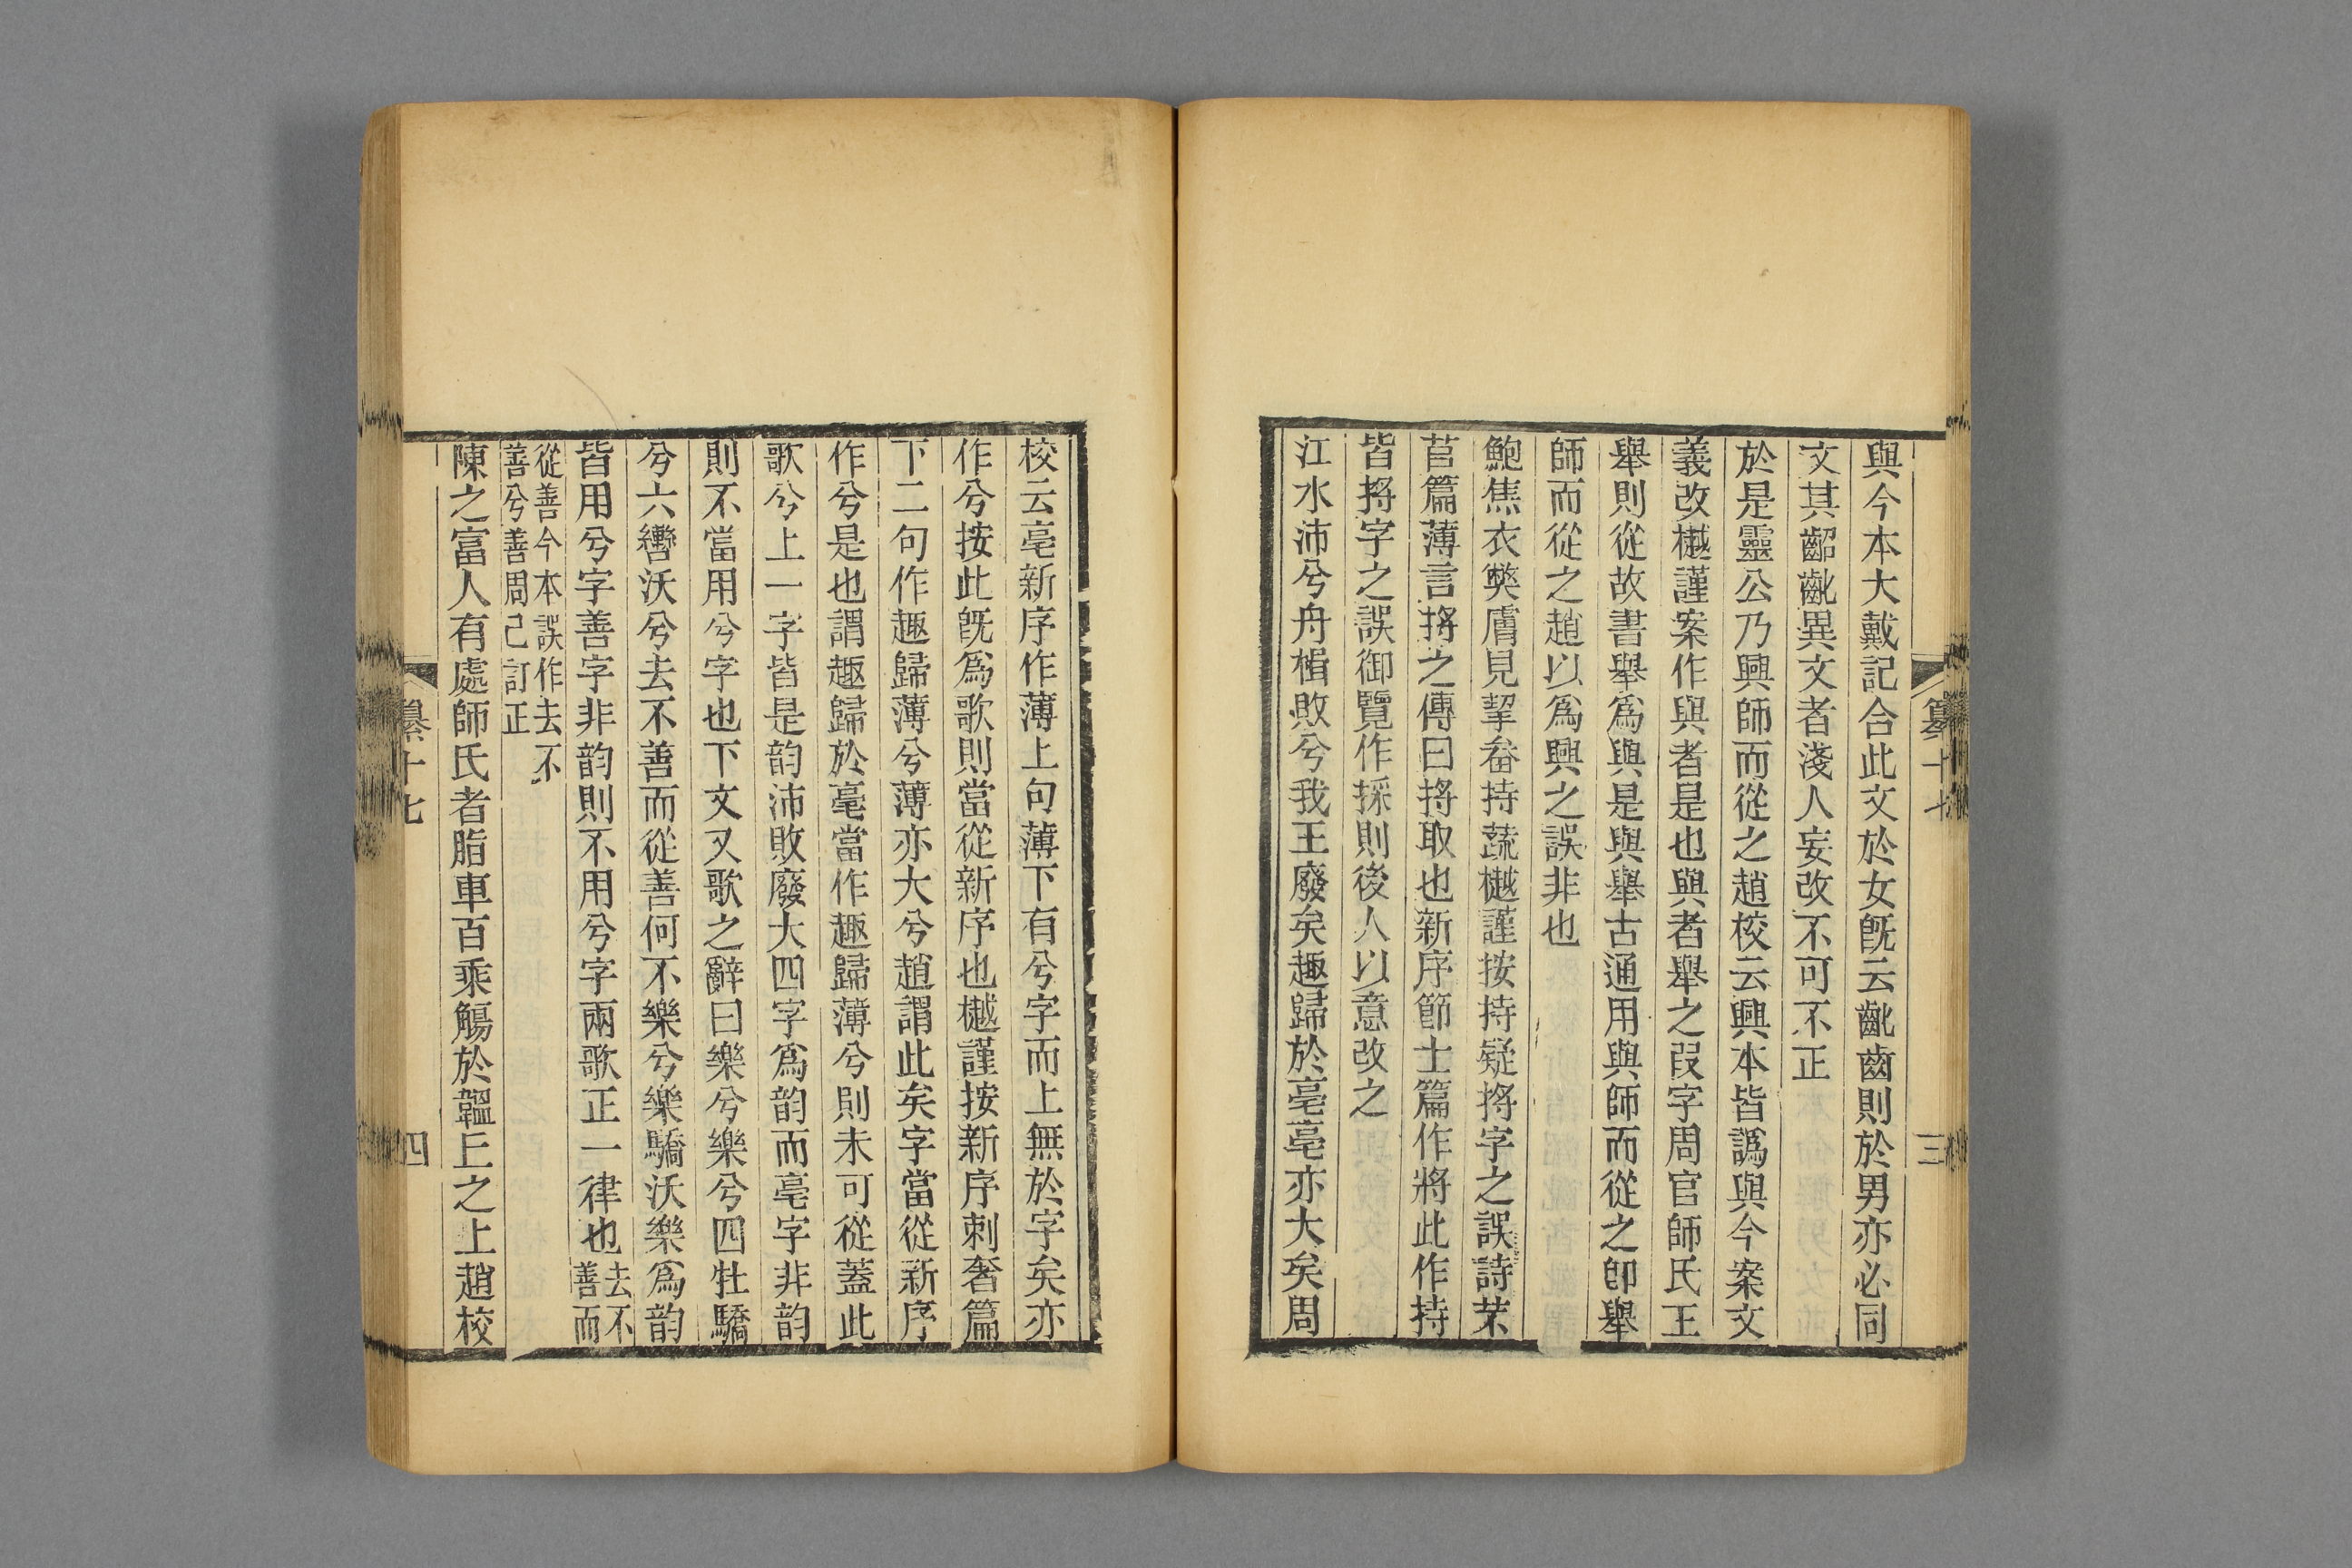 與今本大戴記合此文於女旣云齔齒則於男亦必同
文其齠齔異文者淺人妄改不可不正
於是靈公乃興師而從之趙校云興本皆譌與今案文
義改樾謹案作與者是也與者舉之叚字周官師氏王
舉則從故書舉爲與是與舉古通用與師而從之卽舉
師而從之趙以爲興之誤非也
鮑焦衣獘膚見挈畚持蔬樾謹按持疑捋字之誤詩芣
苢篇薄言捋之傳曰捋取也新序節士篇作將此作持
皆捋字之誤御覽作採則後人以意改之
江水沛兮舟楫敗兮我王廢矣趣歸於亳亳亦大矣周
纂十七
三
校云亳新序作薄上句薄下有兮字而上無於字矣亦
作兮按此旣爲歌則當從新序也樾謹按新序刺奢篇
下二句作趣歸薄兮薄亦大兮趙謂此矣字當從新序
作兮是也謂趣歸於亳當作趣歸薄兮則未可從蓋此
歌兮上一字皆是韵沛敗廢大四字爲韵而亳字非韵
則不當用兮字也下文又歌之辭曰樂兮樂兮四牡驕
兮六轡沃兮去不善而從善何不樂兮樂驕沃樂爲韵
皆用兮字善字非韵則不用兮字兩歌正一律也去不
善而
從善今本誤作去不
善兮善周己訂正
陳之富人有處師氏者脂車百乘觴於韞丘之上趙校
纂十七
四